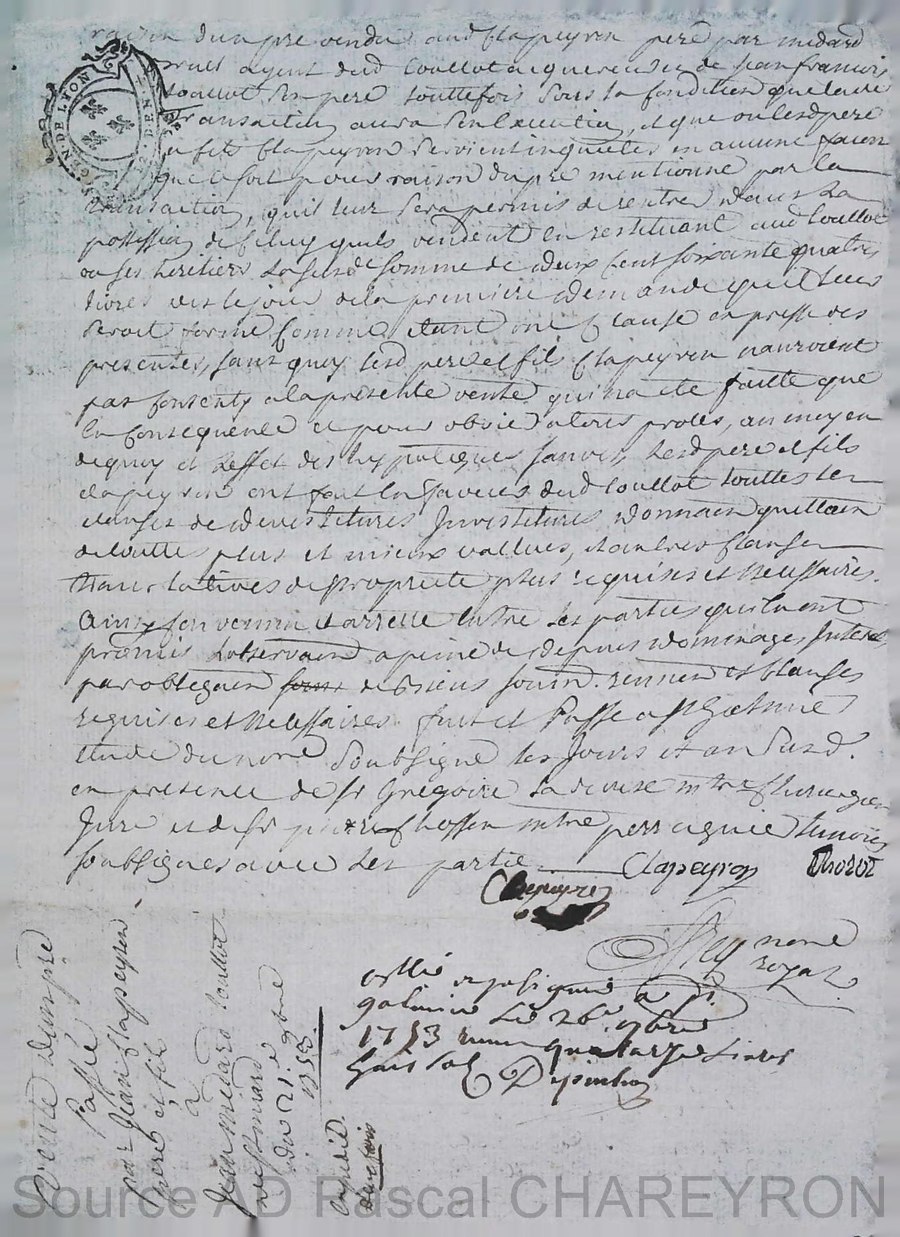 raison dun pre vendu aud Clapeyron pere par medard
agent dud Coullot acquereur de Jean francois
son pere touttefois sous la condition que la
transaction aura son Execution, et que ou lesd pere
et fils Clapeyron servient inquietés en aucune facon
que ce soit pour raison du pre mentionné par la
transaction, quil leur sera permis de rentrer dans la
possession de celuy quils vendent en restituant aud Coullot
ou ses heritiers lasusd somme de deux cent soixante quatre
livres des le jour de la premiere demande qui leur
seroit formé comme étant une clause expresse des
presentes, sans quoy lesd pere et fils Clapeyron nauroient
pas consenty a la presente vente qui na ete faitte que
en consequence et pour obvier a tous proces, au moyen
dequoy et leffet des hypoteques lesd pere et fils
clapeyron ont fait en faveur dud Coullot touttes les
clauses de devestitures Jnvestitures donnaon quittaon
de toutte plus et mieux vallues, et autres clauses
translatives de proprieté plus requises et necessaires.
Ainsy convenu et arretté entre les parties quils ont
promis Lobservaon a peine de depens dommages Interets
par obligaon de biens soum. renon et clauses
requises et necessaires. fait et Passé a st
Etude du nore soubsigné les jours et an susd.
en presence de sr Gregoire mtre chirurgien
Juré et de sr pierre mtre perruquier temoins
soubsignes avec les parties Clapeyron
Clapeyron
nore
royal
a st
galmier Le 26e 9bre
1753 quatorze livres
huit sols
Vente dun pré
Passé
par Jean Clapeyron
pere et fils
a
Jean medard Coullot
du 21e 9bre
1753.
Expedié
deux fois
GEN. DE LYON
2 DEN.
Source AD Pascal CHAREYRON